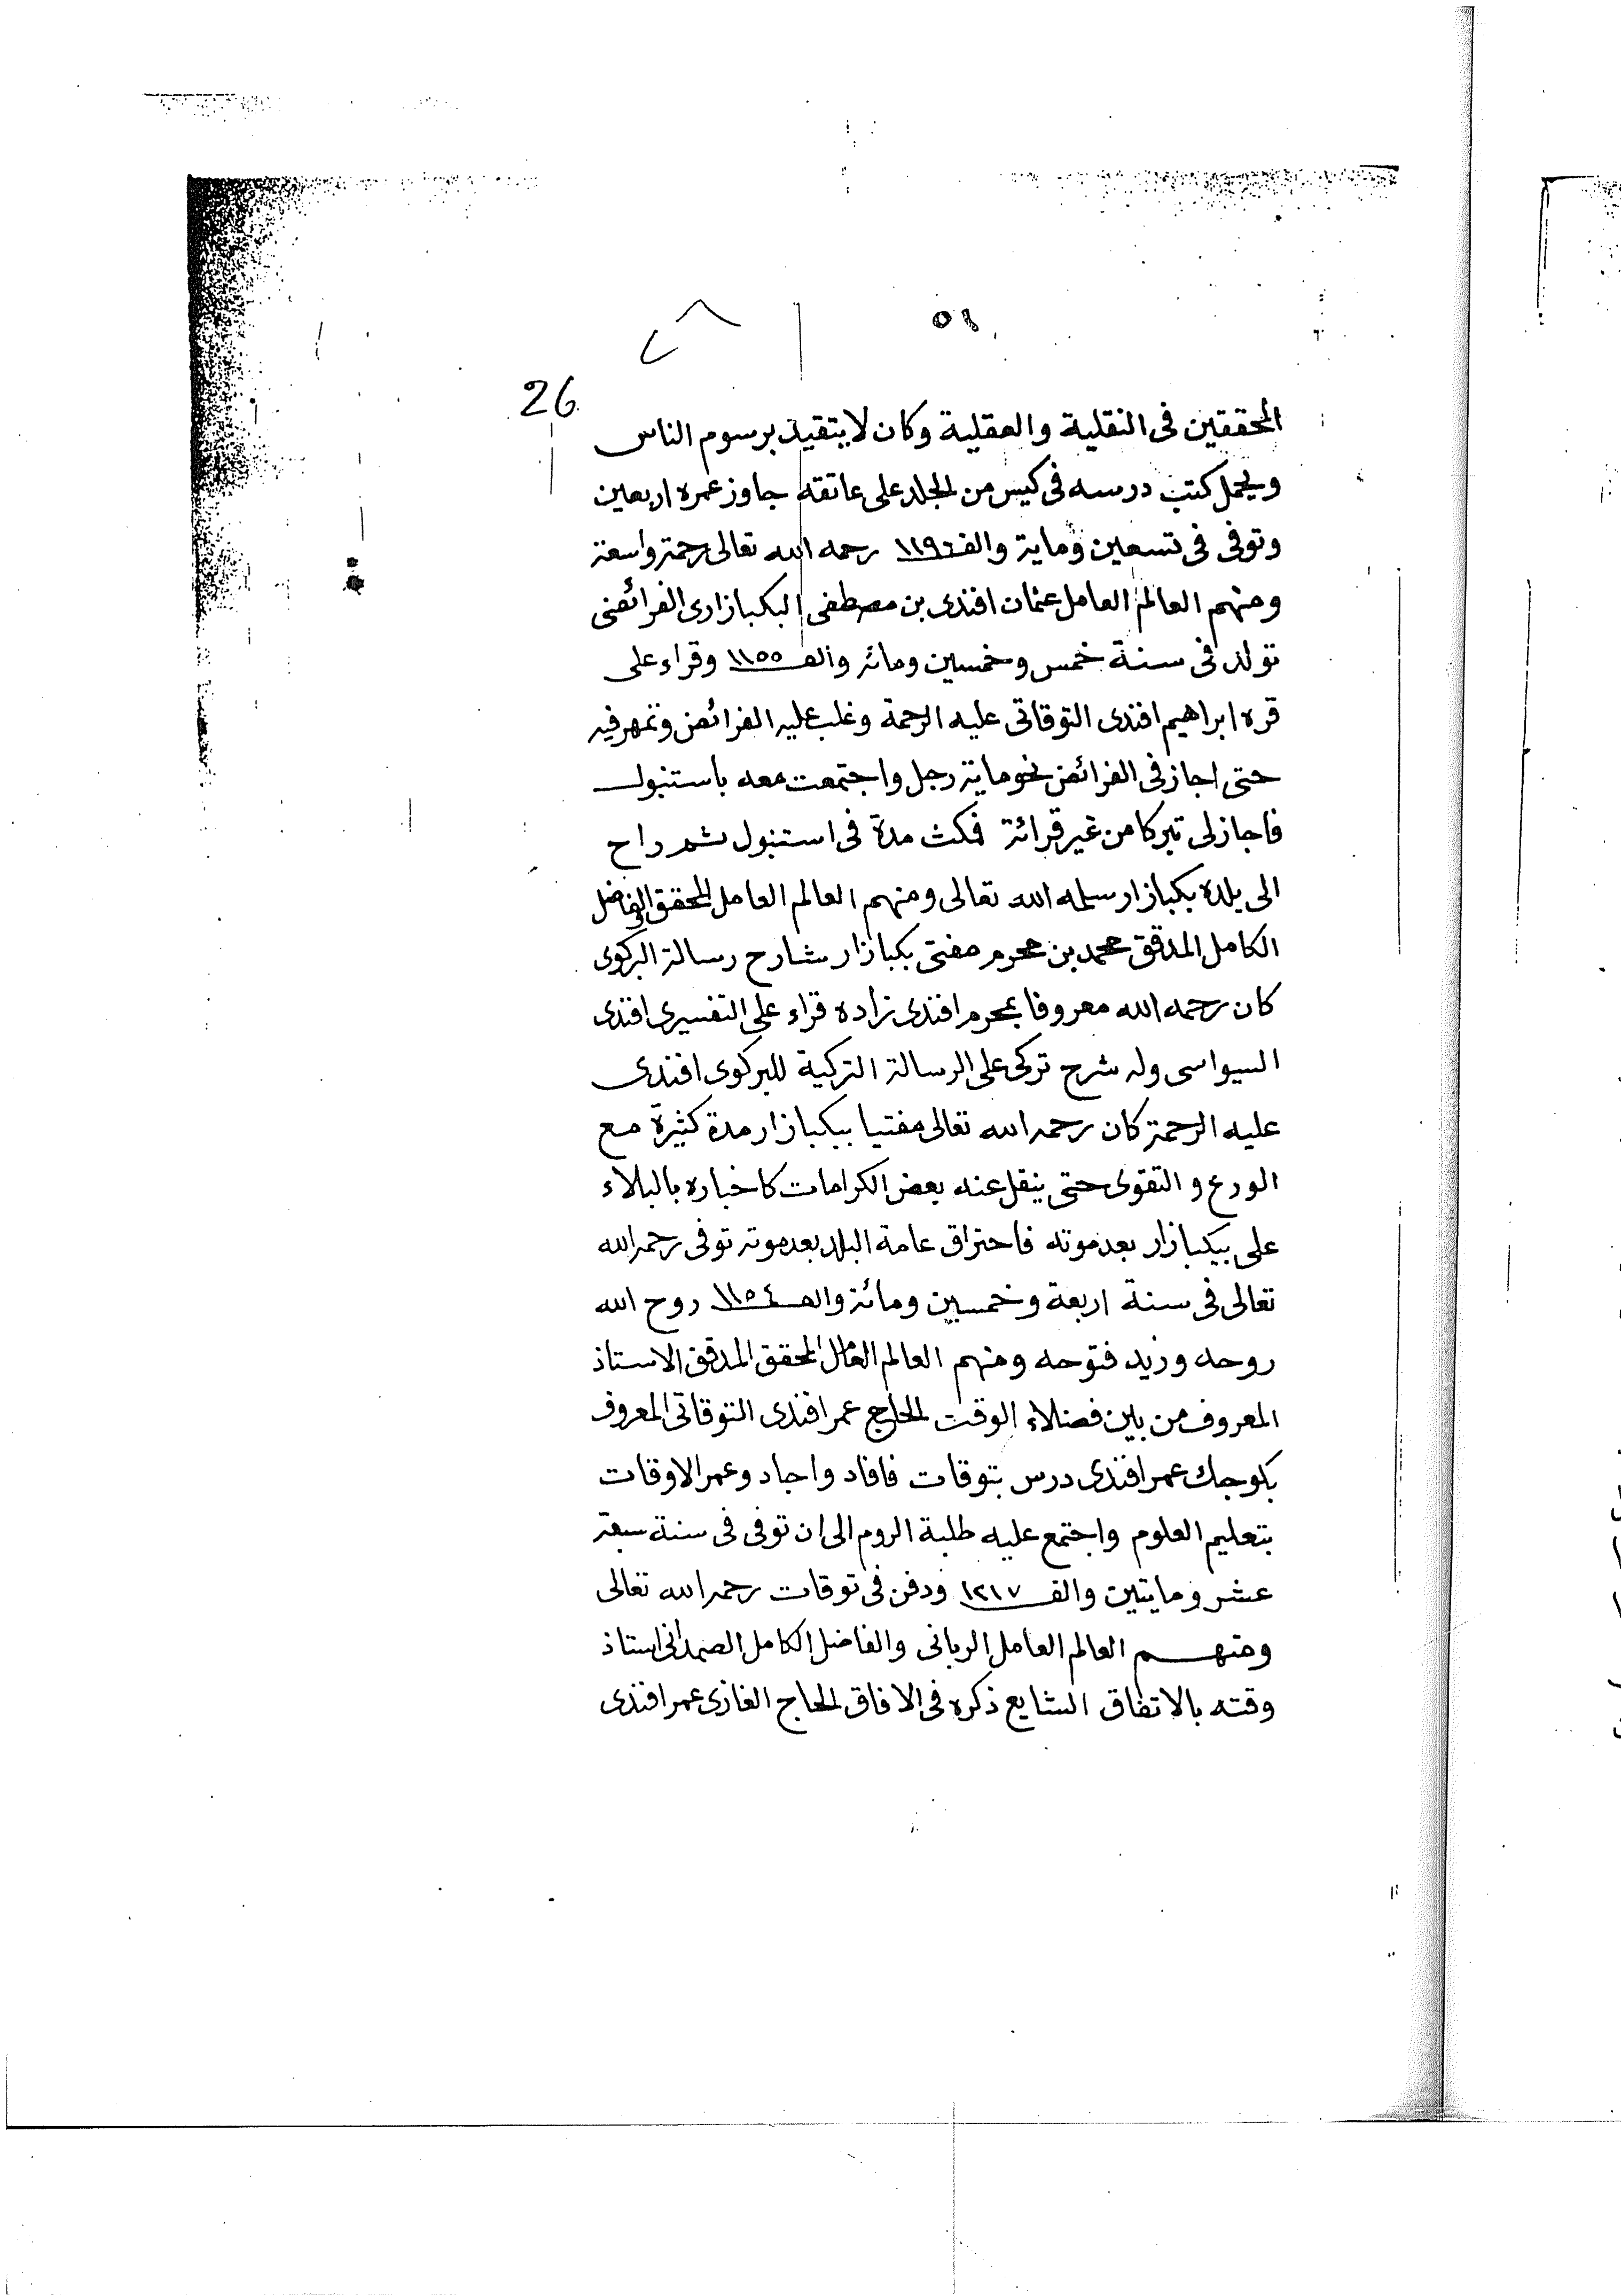 ٥١
26
المحققين فى النقلية والعقلية وكان لا يتقيد برسوم الناس
ويحمل كتب درسه فى كيس من الجلد على عاتقه جاوز عمره اربعين
وتوفى فى تسعين وماية والف رحمه الله تعالى رحمة واسعة
ومنهم العالم العامل عثمان افندى بن مصطفى البكبازارى الفرائضى
تولد فى سنة خمس وخمسين ومائة والف ١١٥٥ وقراء على
قره ابراهيم افندى التوقاتى عليه الرحمة وغلب عليه الفرائض وتمهر فيه
حتى اجاز فى الفرائض نحو ماية رجل واجتمعت معه باستنبول
فاجاز لى تبركا من غير قرائة فمكث مدة فى استنبول ثم راح
الى بلده بكبازار سلمه الله تعالى ومنهم العالم العامل المحقق والفاضل
الكامل المدقق محمد بن محرم مفتى بكبازار شارح رسالة البركوى
كان رحمه الله معروفا بمحرم افندى زاده قراء على التفسيرى افندى
السيواسى وله شرح تركى على الرسالة التركية للبركوى افندى
عليه الرحمة كان رحمه الله تعالى مفتيا ببكبازار مدة كثيرة مع
الورع والتقوى حتى ينقل عنه بعض الكرامات كاخباره بالبلاء
على بيكبازار بعد موته فاحتراق عامة البلد بعد موته توفى رحمه الله
تعالى فى سنة اربعة وخمسين ومائة والف ١١٥٤ روح الله
روحه وزيد فتوحه ومنهم العالم الفاضل المحقق المدقق الاستاذ
المعروف من بين فضلاء الوقت الحاج عمر افندى التوقاتى المعروف
بكوجك عمر افندى درس بتوقات فافاد واجاد وعمر الاوقات
بتعليم العلوم واجتمع عليه طلبة الروم الى ان توفى فى سنة سبعة
عشر ومايتين والف ١٢١٧ ودفن فى توقات رحمه الله تعالى
ومنهم العالم العامل الربانى والفاضل الكامل الصمدانى استاذ
وقته بالاتفاق الشايع ذكره فى الافاق الحاج الغازى عمر افندى